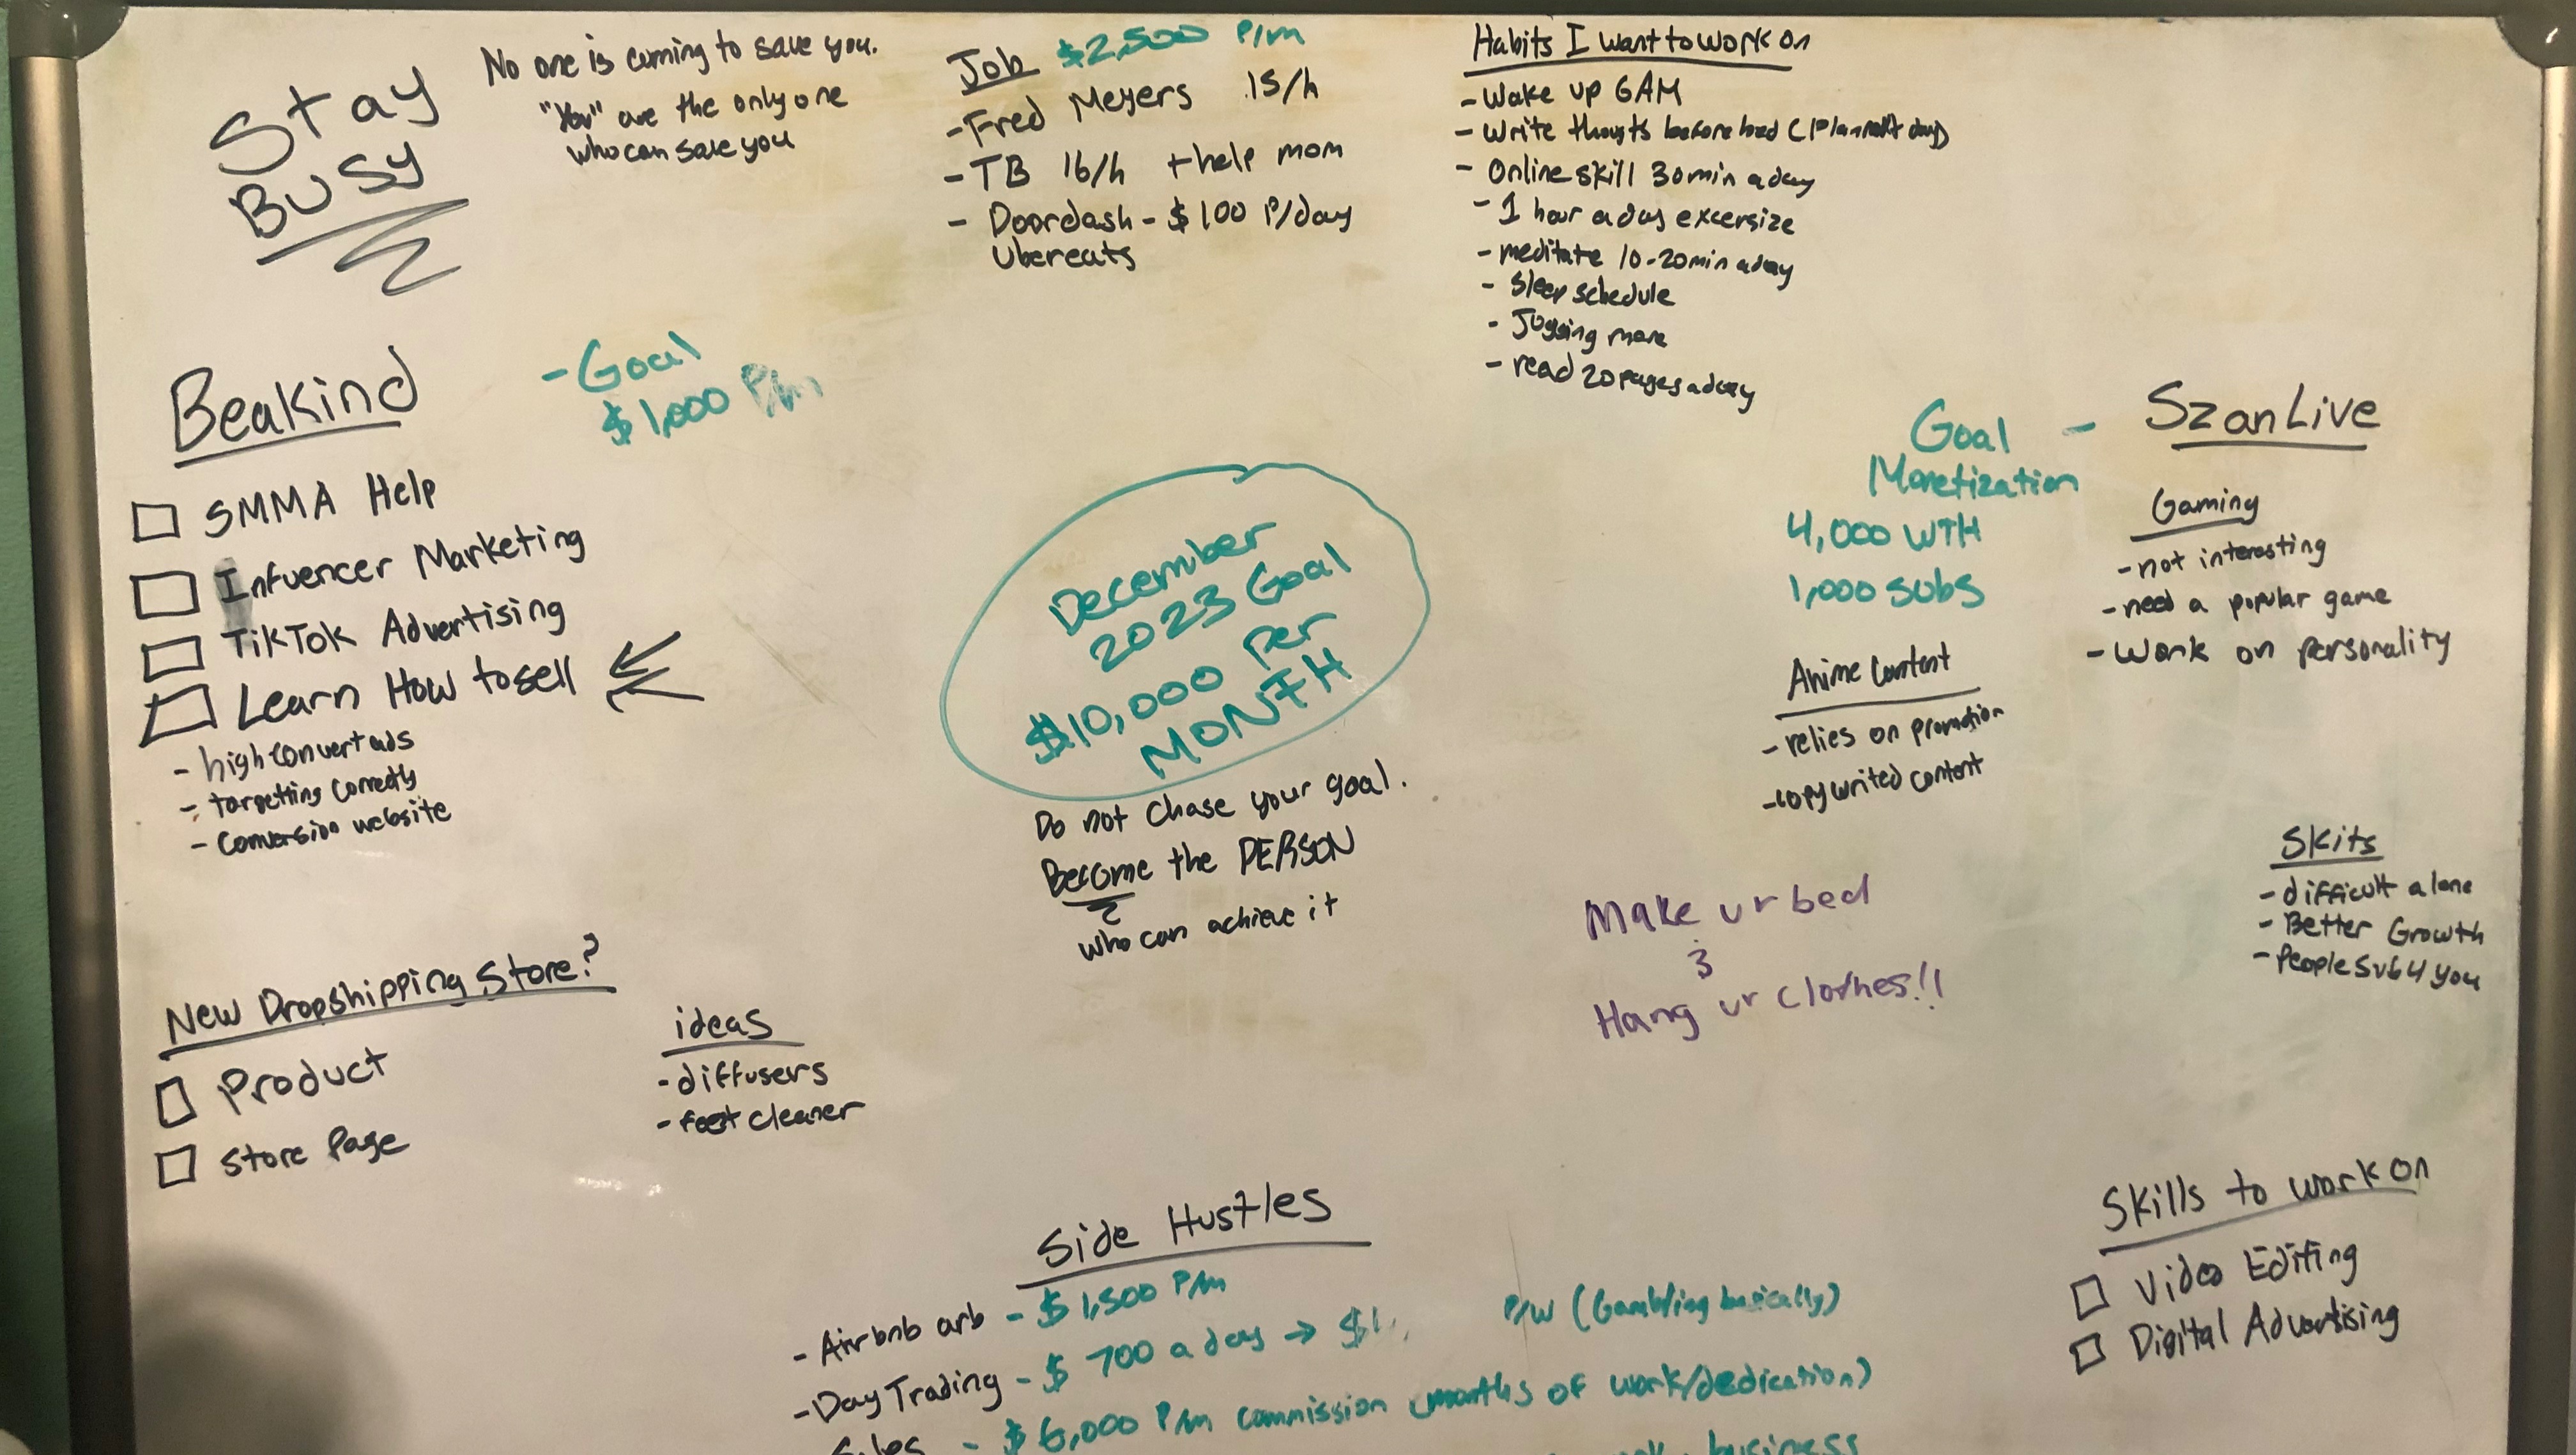 Stay
BUSY
No one is coming to save you.
"You" are the only one
who can save you
Job $2,500 P/m
-Fred Meyers 15/h
-TB 16/h + help mom
- Doordash - $100 P/day
Ubereats
Habits I want to work on
-Wake up 6AM
- write
before bed (Plan
day)
- Online skill 30min a day
- 1 hour a day excersize
- meditate 10-20min a day
- Sleep schedule
- Jogging more
- read 20 pages a day
Beakind
-Goal
$1,000 P/m
SMMA Help
Infuencer Marketing
TikTok Advertising
Learn How to sell
- high convert ads
- targetting correctly
- Conversion website
December
2023 Goal
$10,000 per
MONTH
Do not chase your goal.
Become the PERSON
who can achieve it
Goal - SzanLive
Monetization
4,000 WTH
1,000 subs
Gaming
-not interesting
-need a popular game
-Work on personality
Anime Content
-relies on promotion
-copywrited content
Skits
-difficult alone
-Better Growth
-People sub 4 you
Make ur bed
&
Hang ur clothes!!
New Dropshipping Store?
Product
Store Page
ideas
-diffusers
-feet cleaner
Side Hustles
-Airbnb arb - $1,500 P/m
-Day Trading - $700 a day → $1, P/W (Gambling basically)
Sales - $6,000 P/m commission (months of work/dedication)
business
Skills to work on
Video Editing
Digital Advertising